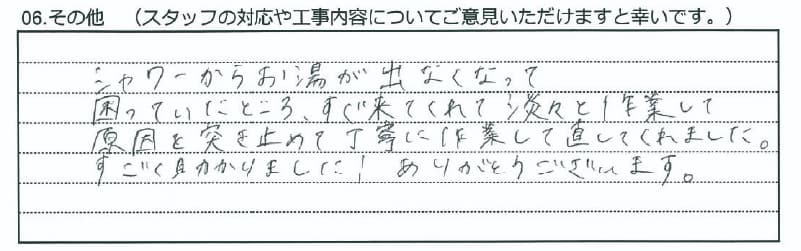 06.その他 (スタッフの対応や工事内容についてご意見いただけますと幸いです。)
シャワーからお湯が出なくなって
困っていたところ、すぐ来てくれて淡々と作業して
原因を突き止めて丁寧に作業して直してくれました。
すごく助かりました! ありがとうございます。